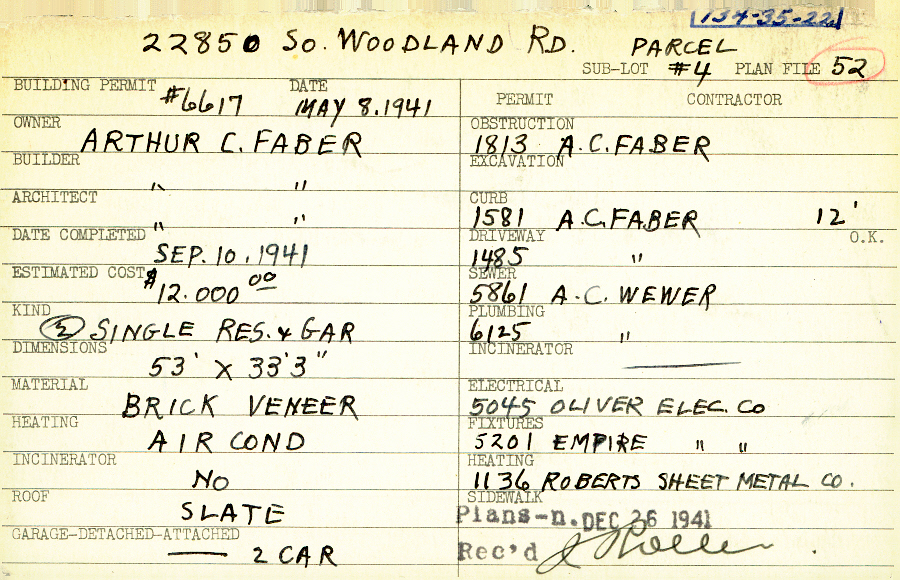 134-35-22
22850 So. WOODLAND RD. PARCEL
SUB-LOT #4 PLAN FILE 52
BUILDING PERMIT #6617 DATE MAY 8.1941
OWNER ARTHUR C. FABER
BUILDER " "
ARCHITECT " "
DATE COMPLETED SEP. 10. 1941
ESTIMATED COST $12.000 00
KIND (2) SINGLE RES. & GAR
DIMENSIONS 53' X 33'3"
MATERIAL BRICK VENEER
HEATING AIR COND
INCINERATOR NO
ROOF SLATE
GARAGE-DETACHED-ATTACHED — 2 CAR
PERMIT CONTRACTOR
OBSTRUCTION 1813 A.C. FABER
EXCAVATION
CURB 1581 A.C. FABER 12'
DRIVEWAY 1485 " O.K.
SEWER 5861 A.C. WEWER
PLUMBING 6125 "
INCINERATOR —
ELECTRICAL 5045 OLIVER ELEC. CO
FIXTURES 5201 EMPIRE " "
HEATING 1136 ROBERTS SHEET METAL CO.
SIDEWALK
Plans-n. DEC 26 1941
Rec'd